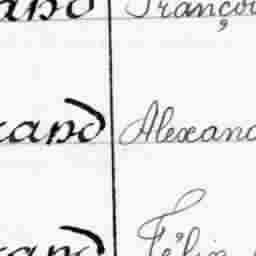 and Françoi
cand Alexand
cand Félix